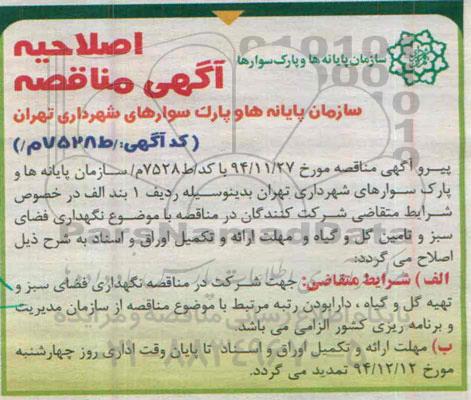 اصلاحیه
آگهی مناقصه
سازمان پایانه ها و پارک سوارها
سازمان پایانه هاو پارک سوارهای شهرداری تهران
(کد آگهی:/ط۷۵۲۸م/)
پیرو آگهی مناقصه مورخ ۹۴/۱۱/۲۷ با کد/ط۷۵۲۸م/ سازمان پایانه ها و
پارک سوارهای شهرداری تهران بدینوسیله ردیف ۱ بند الف در خصوص
شرایط متقاضی شرکت کنندگان در مناقصه با موضوع نگهداری فضای
سبز و تامین گل و گیاه و مهلت ارائه و تکمیل اوراق و اسناد به شرح ذیل
اصلاح می گردد:
الف) شرایط متقاضی: جهت شرکت در مناقصه نگهداری فضای سبز و
تهیه گل و گیاه ، دارابودن رتبه مرتبط با موضوع مناقصه از سازمان مدیریت
و برنامه ریزی کشور الزامی می باشد.
ب) مهلت ارائه و تکمیل اوراق و اسناد تا پایان وقت اداری روز چهارشنبه
مورخ ۹۴/۱۲/۱۲ تمدید می گردد.
ParsNamadData
پایگاه اطلاع رسانی مناقصه و مزایده